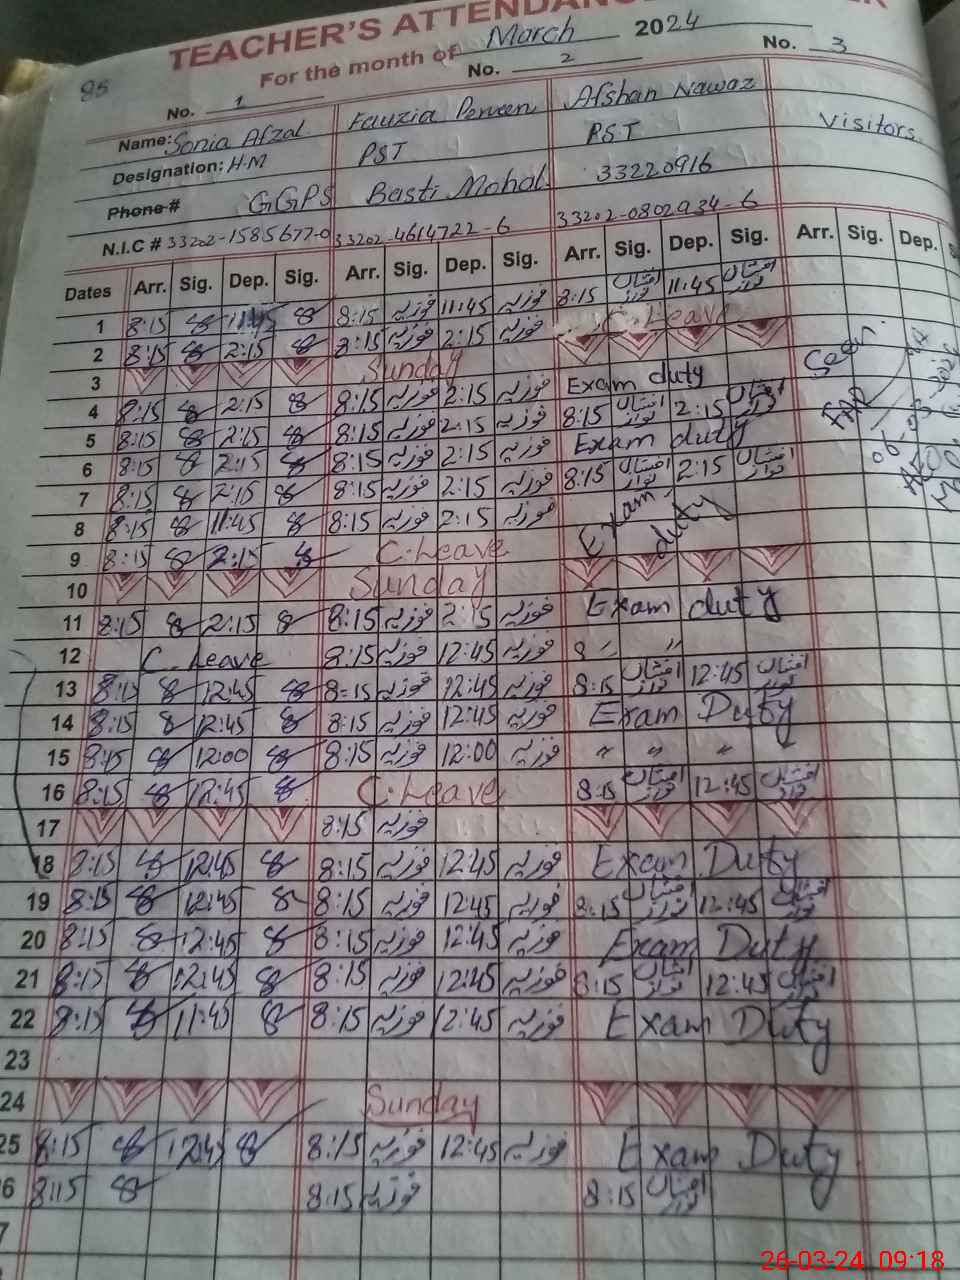 TEACHER'S ATTENDANCE
85
For the month of March 2024
No. 1 No. 2 No. 3
Name: Sonia Afzal Fauzia Perveen Afshan Nawaz Visitors.
Designation: H.M PST P.S.T
Phone # GGPS Basti Mohal 33220916
N.I.C # 33202-1585677-0 33202-4614722-6 33202-0802934-6
Dates Arr. Sig. Dep. Sig. Arr. Sig. Dep. Sig. Arr. Sig. Dep. Sig. Arr. Sig. Dep.
1 8:15 11:45 8:15 فوزیہ 11:45 فوزیہ 8:15 افشاں نواز 11:45 افشاں نواز
2 8:15 2:15 8:15 فوزیہ 2:15 فوزیہ C.Leave
3 Sunday
4 8:15 2:15 8:15 فوزیہ 2:15 فوزیہ Exam duty
5 8:15 2:15 8:15 فوزیہ 2:15 فوزیہ 8:15 افشاں نواز 2:15 افشاں نواز
6 8:15 2:15 8:15 فوزیہ 2:15 فوزیہ Exam duty
7 8:15 2:15 8:15 فوزیہ 2:15 فوزیہ 8:15 افشاں نواز 2:15 افشاں نواز
8 8:15 11:45 8:15 فوزیہ 2:15 فوزیہ Exam duty
9 8:15 2:15 C.Leave
10 Sunday
11 8:15 2:15 8:15 فوزیہ 2:15 فوزیہ Exam duty
12 C.Leave 8:15 فوزیہ 12:45 فوزیہ 〃 〃
13 8:15 12:45 8:15 فوزیہ 12:45 فوزیہ 8:15 افشاں نواز 12:45 افشاں نواز
14 8:15 12:45 8:15 فوزیہ 12:45 فوزیہ Exam Duty
15 8:15 12:00 8:15 فوزیہ 12:00 فوزیہ 〃 〃 〃 〃
16 8:15 12:45 C.Leave 8:15 افشاں نواز 12:45 افشاں نواز
17 8:15 فوزیہ
18 8:15 12:45 8:15 فوزیہ 12:45 فوزیہ Exam Duty
19 8:15 12:45 8:15 فوزیہ 12:45 فوزیہ 8:15 افشاں نواز 12:45 افشاں نواز
20 8:15 12:45 8:15 فوزیہ 12:45 فوزیہ Exam Duty
21 8:15 12:45 8:15 فوزیہ 12:45 فوزیہ 8:15 افشاں نواز 12:45 افشاں نواز
22 8:15 11:45 8:15 فوزیہ 12:45 فوزیہ Exam Duty
23
24 Sunday
25 8:15 12:45 8:15 فوزیہ 12:45 فوزیہ Exam Duty
6 8:15 8:15 فوزیہ 8:15 افشاں نواز
7
26-03-24 09:18